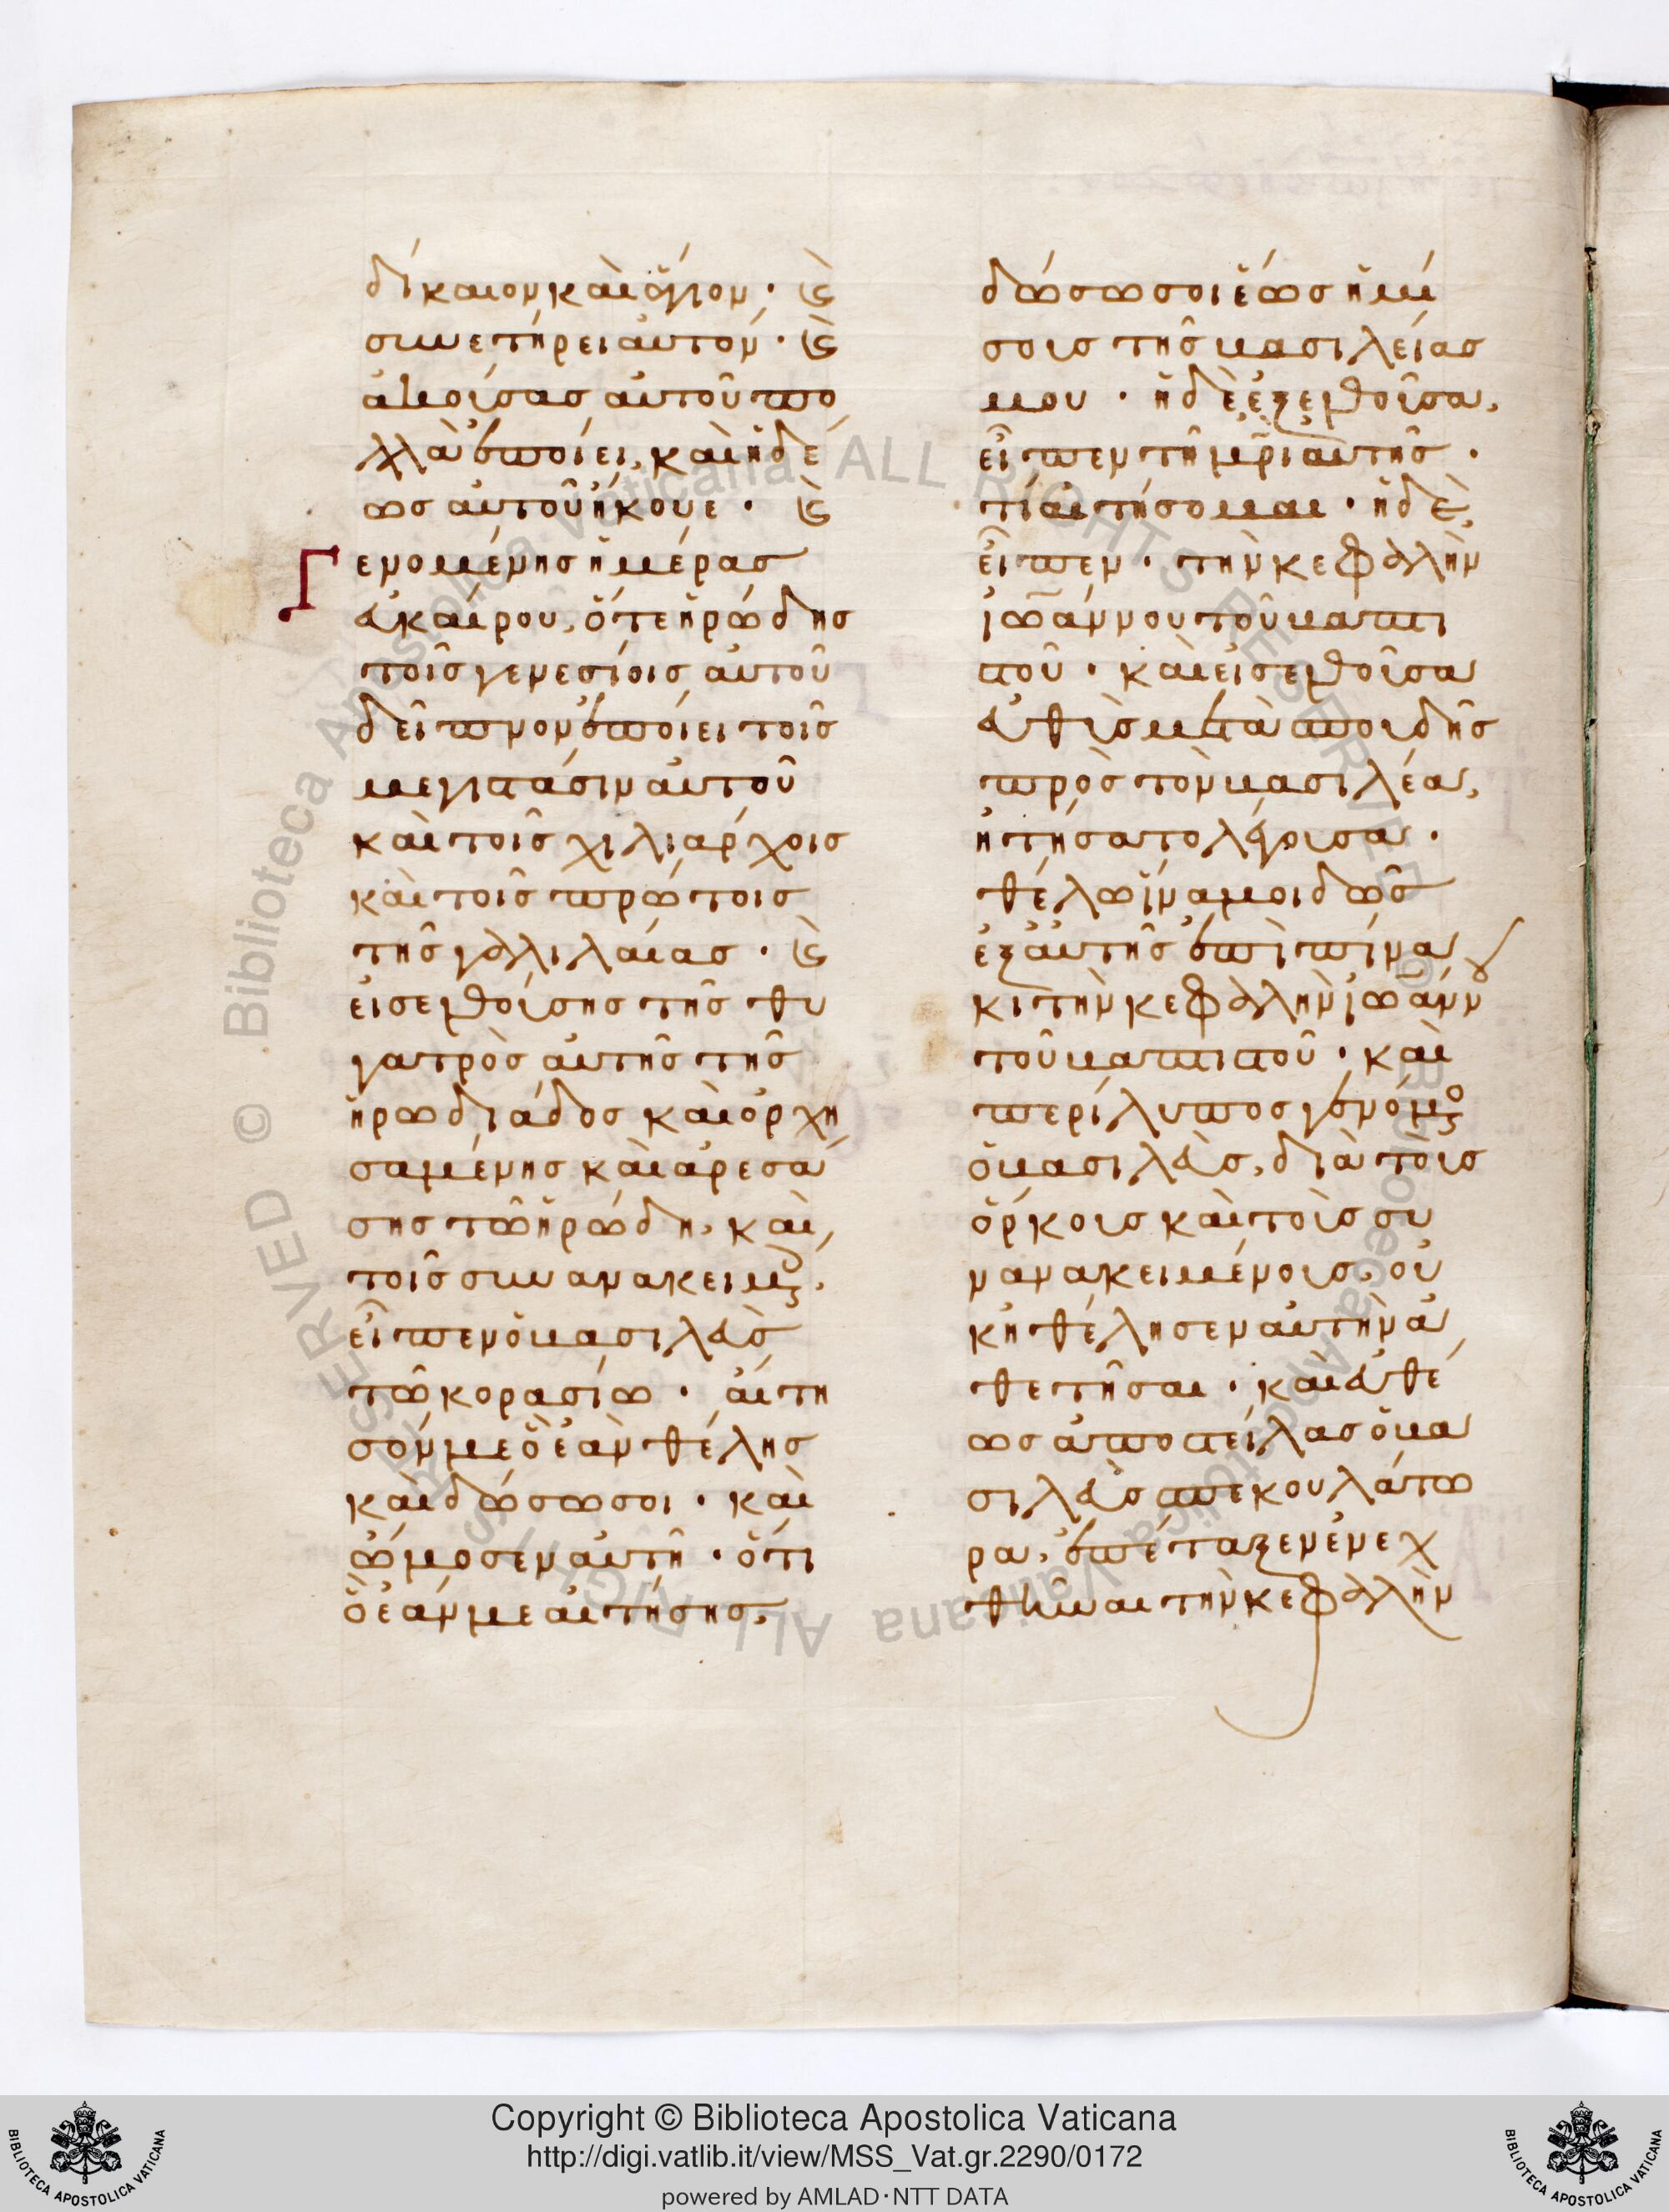 δίκαιον καὶ ἅγιον · καὶ
συνετήρει αὐτόν · καὶ
ἀκούσας αὐτοῦ πο
λλὰ ἐποίει, καὶ ἡδέ
ως αὐτοῦ ἤκουε · καὶ
Γενομένης ἡμέρας
εὐκαίρου, ὅτε ἡρώδης
τοῖς γενεσίοις αὐτοῦ
δεῖπνον ἐποίει τοῖς
μεγιστάσιν αὐτοῦ
καὶ τοῖς χιλιάρχοις
καὶ τοῖς πρώτοις
τῆς γαλιλαίας · καὶ
εἰσελθούσης τῆς θυ
γατρὸς αὐτῆς τῆς
ἡρωδιάδος καὶ ὀρχη
σαμένης καὶ ἀρεσά
σης τῶ ἡρώδη, καὶ
τοῖς συνανακειμ,
εἶπεν ὁ βασιλεὺς
τῶ κορασίω · αἴτη
σόν με ὃ ἐὰν θέλης
καὶ δώσω σοι · καὶ
ὤμοσεν αὐτῆ · ὅτι
ὃ ἐάν με αἰτήσης,
δώσω σοι ἕως ἡμί
σους τῆς βασιλείας
μου · ἡ δὲ ἐξελθοῦσα,
εἶπεν τῆ μρι αὐτῆς ·
τί αἰτήσομαι · ἡ δὲ
εἶπεν · τὴν κεφαλὴν
ἰωάννου τοῦ βαπτι
στοῦ · καὶ εἰσελθοῦσα
εὐθὺς μετὰ σπουδῆς
πρὸς τὸν βασιλέα,
ἠτήσατο λέγουσα ·
θέλω ἵνα μοι δῶς
ἐξαὐτῆς ἐπὶ πίνα
κι τὴν κεφαλὴν ἰωάννου
τοῦ βαπτιστοῦ · καὶ
περίλυπος γενόμενος
ὁ βασιλεὺς, διὰ τοὺς
ὅρκους καὶ τοὺς συ
νανακειμένους, οὐ
κ ἠθέλησεν αὐτὴν ἀ
θετῆσαι · καὶ εὐθέ
ως ἀποστείλας ὁ βα
σιλεὺς σπεκουλάτω
ρα, ἐπέταξεν ἐνεχ
θῆναι τὴν κεφαλὴν
Copyright © Biblioteca Apostolica Vaticana
http://digi.vatlib.it/view/MSS_Vat.gr.2290/0172
powered by AMLAD·NTT DATA
BIBLIOTECA APOSTOLICA VATICANA
BIBLIOTECA APOSTOLICA VATICANA
© Biblioteca Apostolica Vaticana ALL RIGHTS RESERVED
© Biblioteca Apostolica Vaticana ALL RIGHTS RESERVED